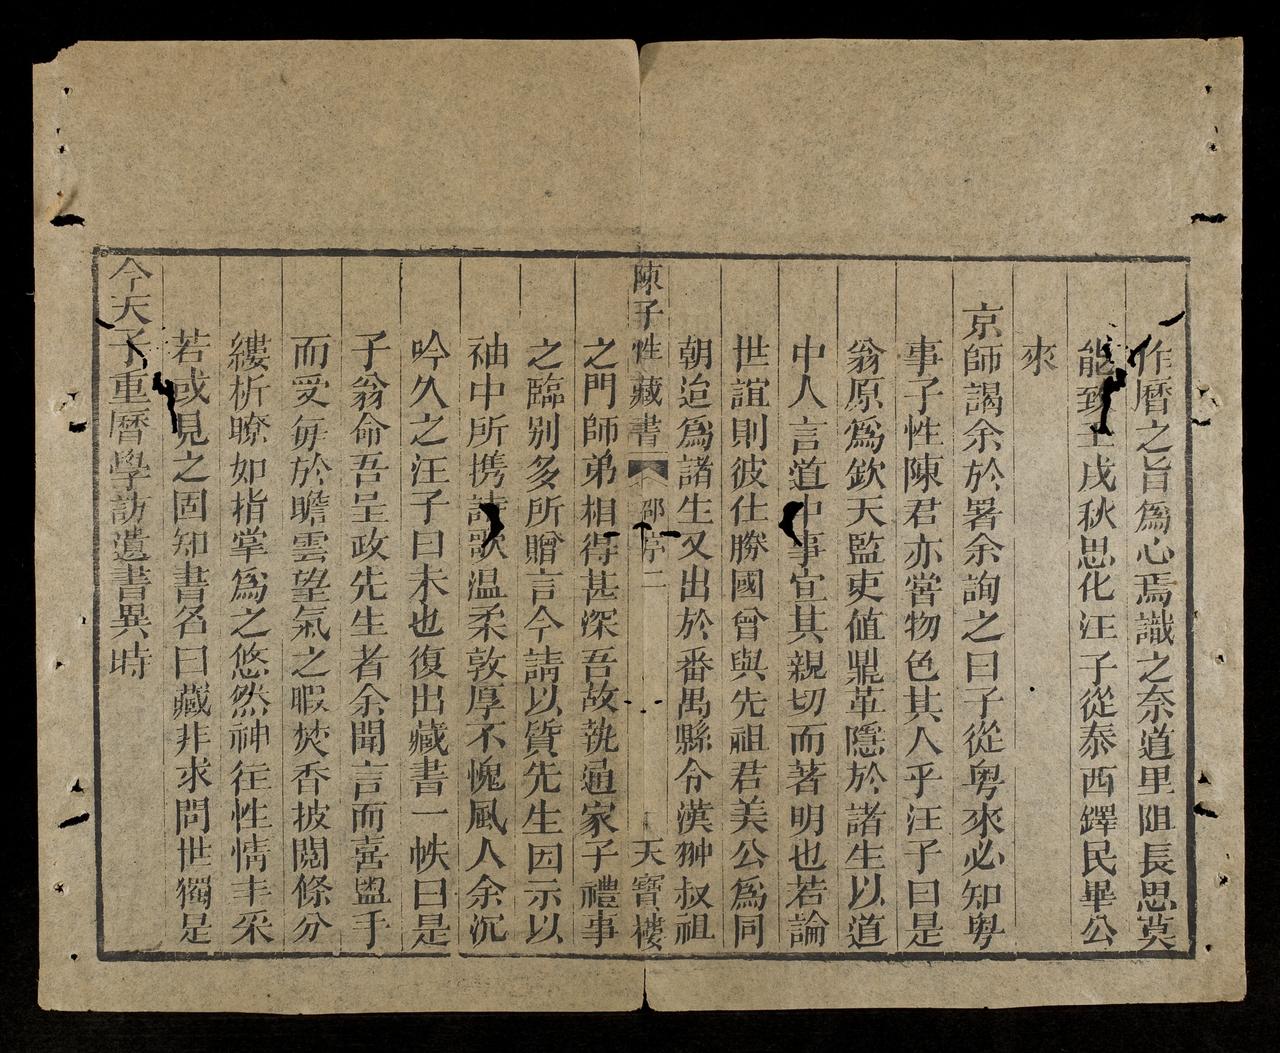 作曆之旨爲心焉識之奈道里阻長思莫
能致壬戌秋思化汪子從泰西鐸民畢公
來
京師謁余於署余詢之曰子從粤來必知粤
事子性陳君亦嘗物色其人乎汪子曰是
翁原爲欽天監吏値鼎革隱於諸生以道
中人言道中事宜其親切而著明也若論
世誼則彼仕勝國曾與先祖君美公爲同
朝迨爲諸生又出於番禺縣令漢翀叔祖
陳子性藏書 邵序 二 天寶樓
之門師弟相得甚深吾故執通家子禮事
之臨别多所贈言今請以質先生因示以
袖中所携詩歌温柔敦厚不愧風人余沉
吟久之汪子曰未也復出藏書一帙曰是
子翁命吾呈政先生者余聞言而喜盥手
而受每於瞻雲望氣之暇焚香披閲條分
縷析瞭如指掌爲之悠然神往性情丰采
若或見之固知書名曰藏非求問世獨足
今天子重曆學訪遺書異時